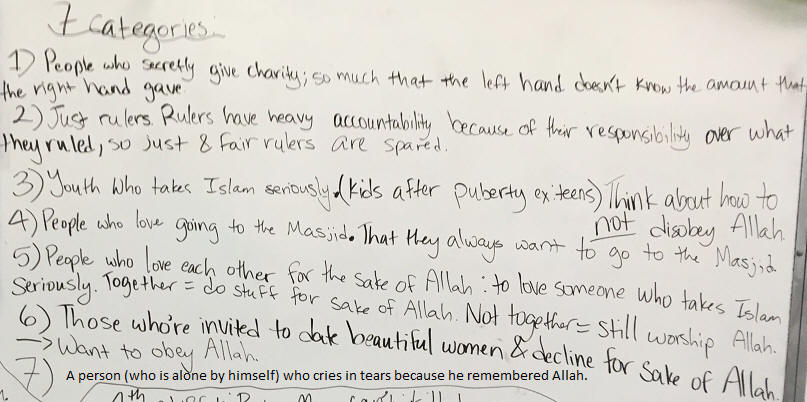 7 categories:
1) People who secretly give charity; so much that the left hand doesn't know the amount that
the right hand gave
2) Just rulers. Rulers have heavy accountability because of their responsibility over what
they ruled, so just & fair rulers are spared.
3) Youth who takes Islam seriously. (kids after puberty ex: teens) Think about how to
not disobey Allah.
4) People who love going to the Masjid. That they always want to go to the Masjid.
5) People who love each other for the sake of Allah: to love someone who takes Islam
Seriously. Together = do stuff for sake of Allah. Not together = still worship Allah.
6) Those who're invited to date beautiful women & decline for sake of Allah.
→ Want to obey Allah.
7) A person (who is alone by himself) who cries in tears because he remembered Allah.